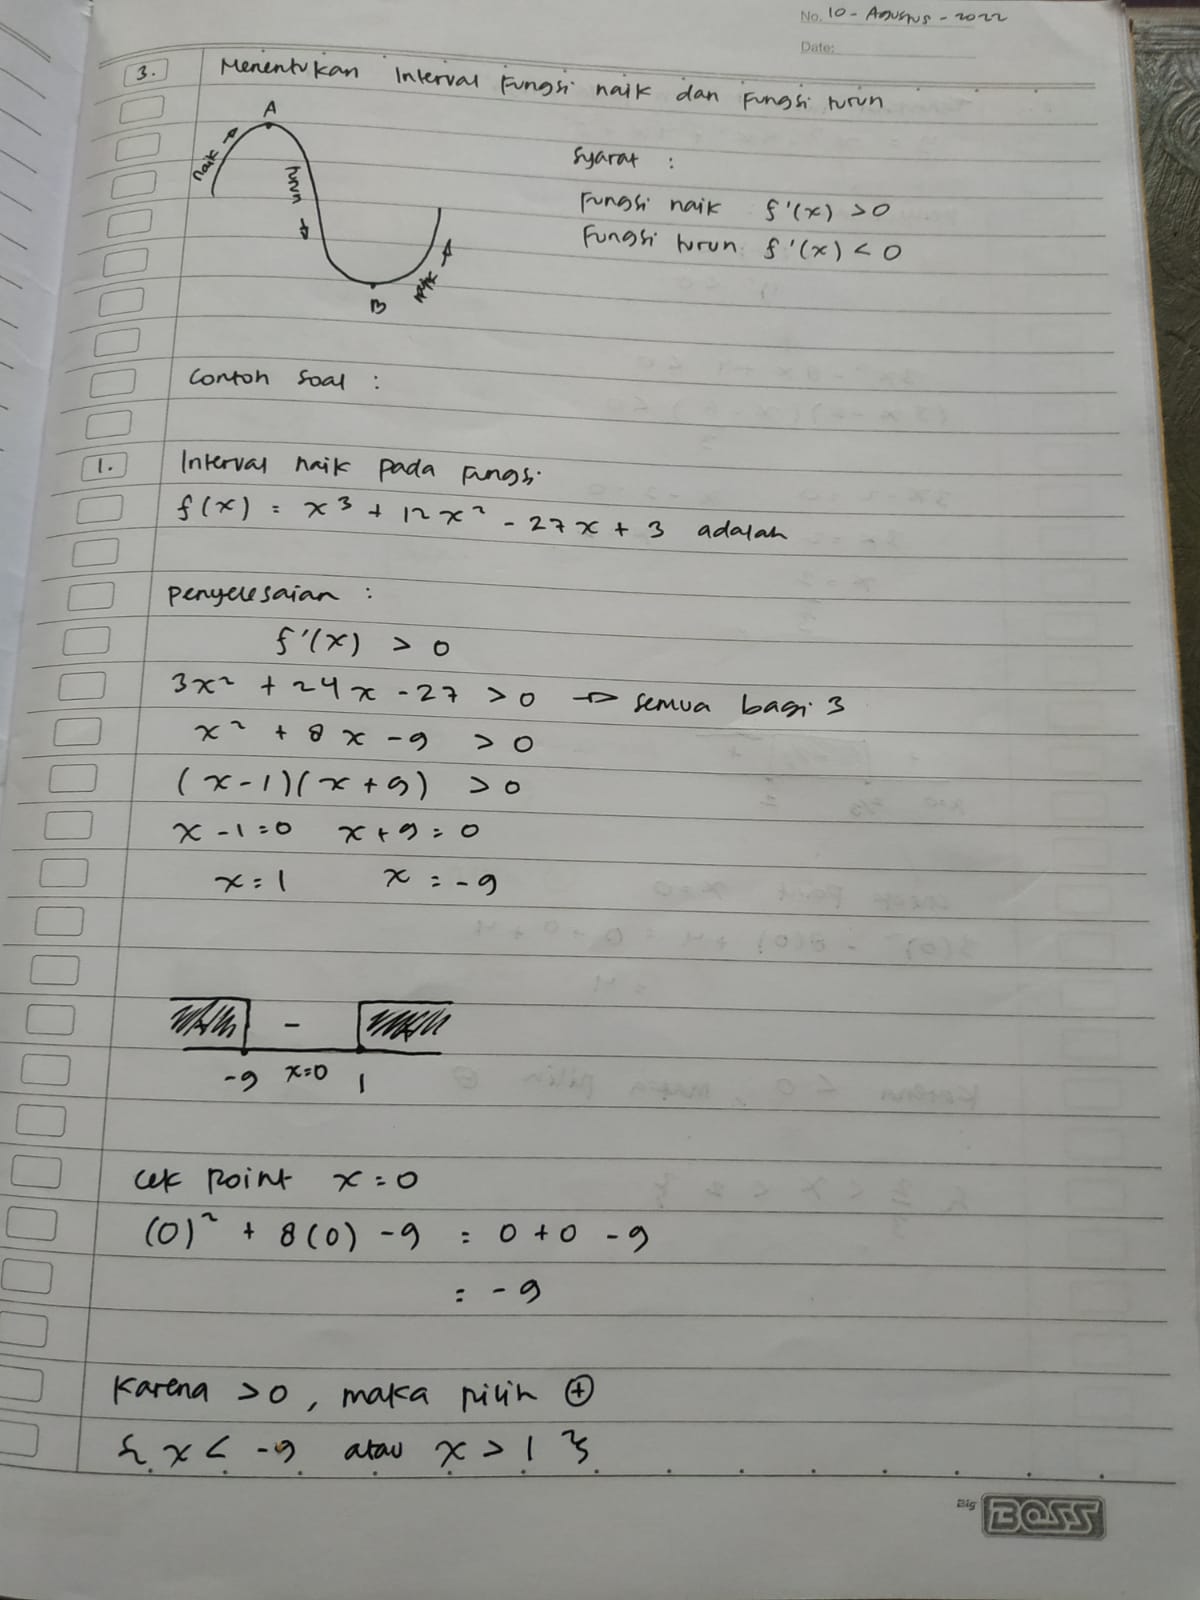 No. 10 - Agustus - 2022
Date:
3. Menentukan interval fungsi naik dan fungsi turun
A
naik
turun
B
naik
Syarat :
Fungsi naik f'(x) > 0
Fungsi turun f'(x) < 0
Contoh soal :
1. Interval naik pada fungsi
f(x) = x³ + 12x² - 27x + 3 adalah
Penyelesaian :
f'(x) > 0
3x² + 24x - 27 > 0 → semua bagi 3
x² + 8x - 9 > 0
(x-1)(x+9) > 0
x - 1 = 0 x + 9 = 0
x = 1 x = -9
-
-9 x=0 1
cek point x = 0
(0)² + 8(0) - 9 = 0 + 0 - 9
= -9
Karena > 0, maka pilih ⊕
{ x < -9 atau x > 1 }
Big BOSS